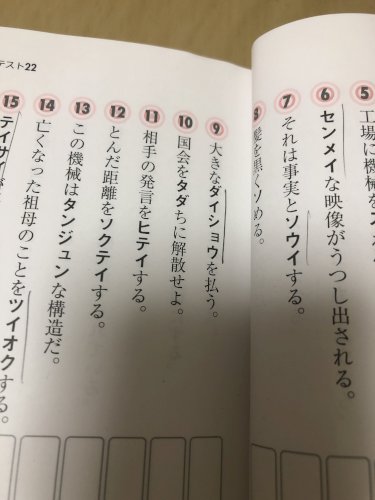 テスト22
5 工場に機械を
6 センメイな映像がうつし出される。
7 それは事実とソウイする。
8 髪を黒くソめる。
9 大きなダイショウを払う。
10 国会をタダちに解散せよ。
11 相手の発言をヒテイする。
12 とんだ距離をソクテイする。
13 この機械はタンジュンな構造だ。
14 亡くなった祖母のことをツイオクする。
15 テイサイ